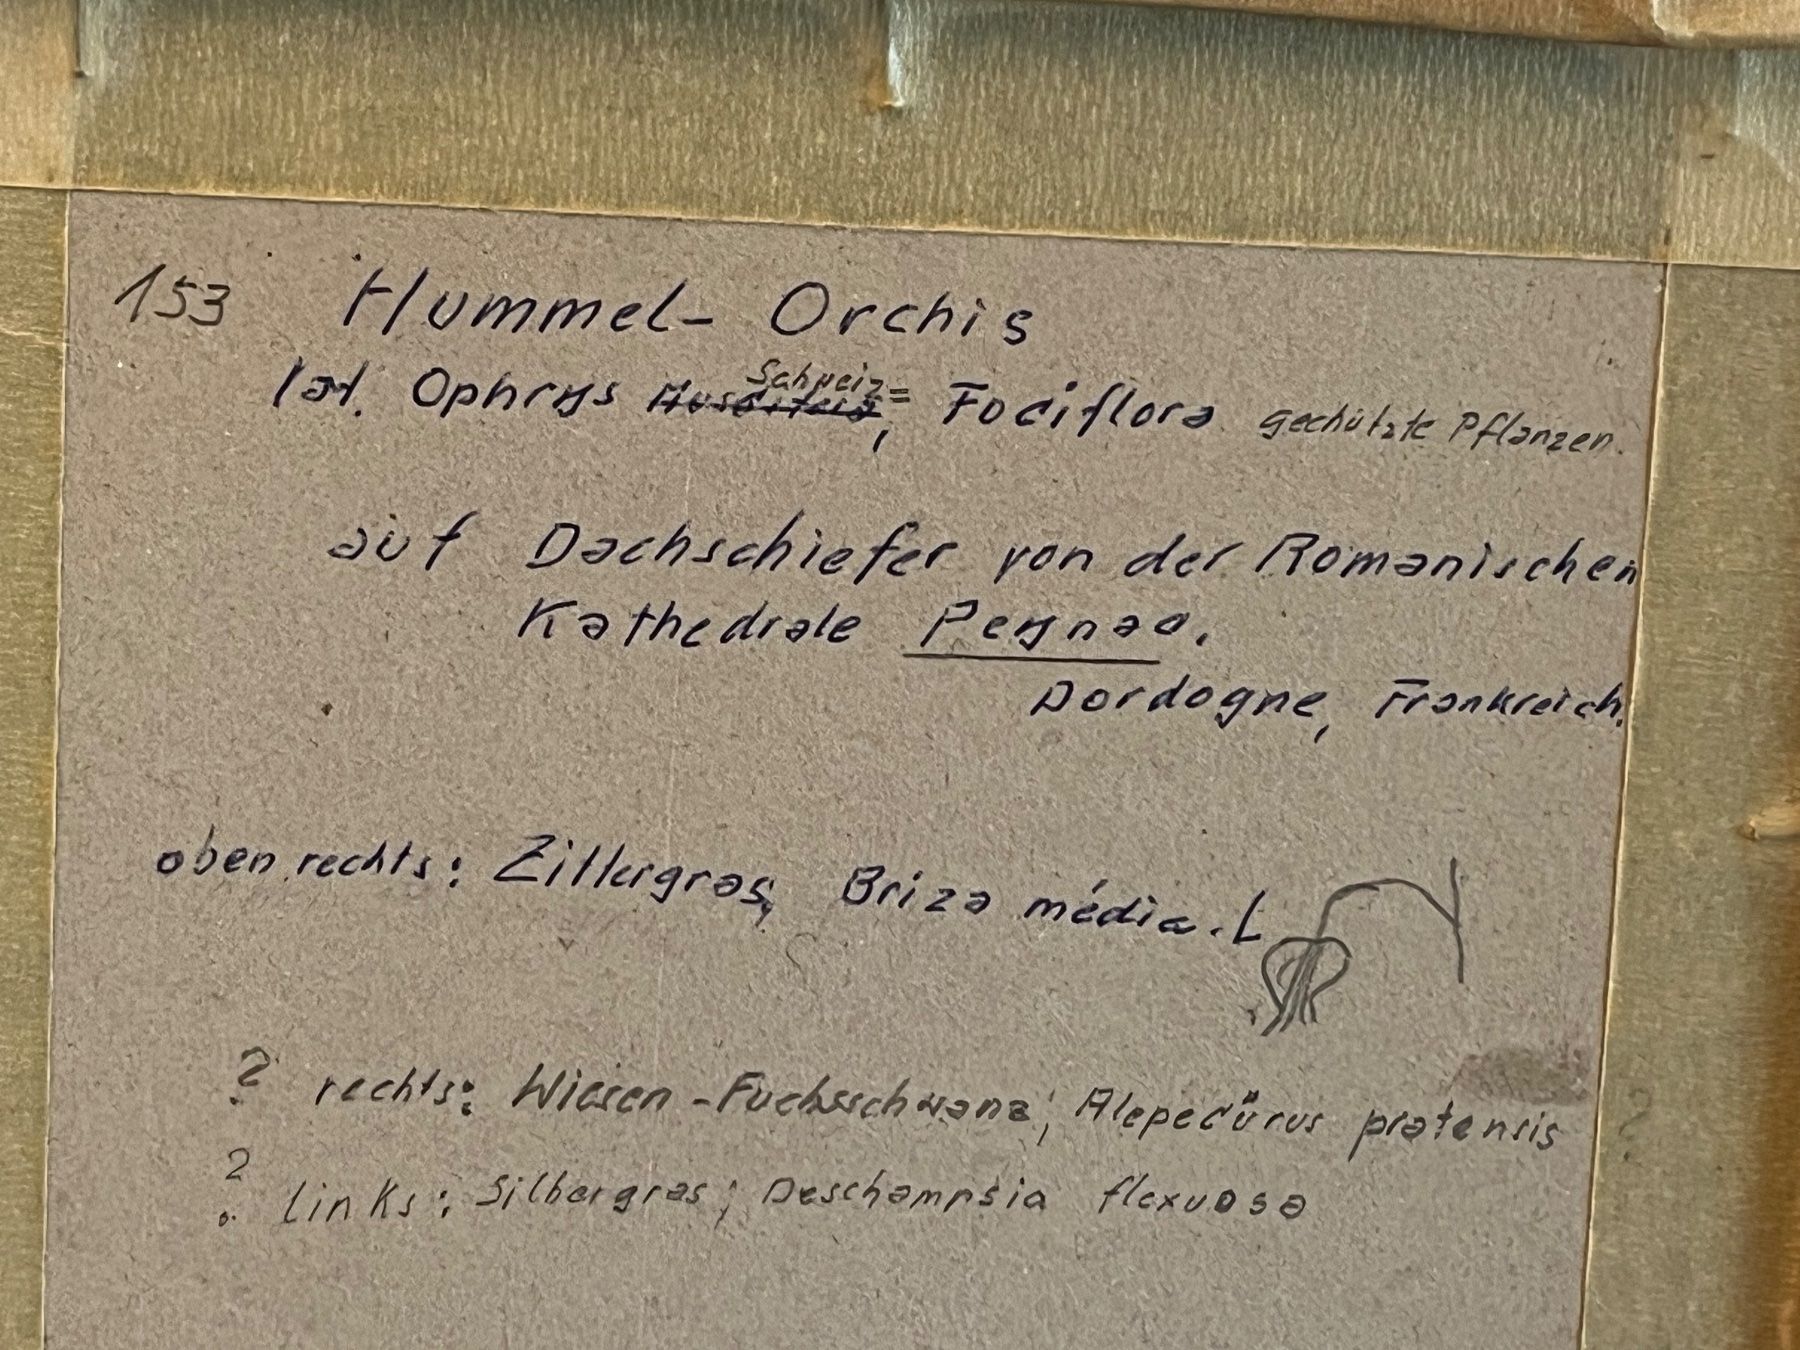 153 Hummel- Orchis
Schweiz=
lat. Ophrys Fociflora gechützte Pflanzen.
auf Dachschiefer von der Romanischen
Kathedrale Peynac.
Dordogne, Frankreich.
oben rechts: Zittergras, Briza média. L
? rechts: Wiesen-Fuchsschwanz; Alepecürus pratensis
? links: Silbergras; Deschampsia flexuosa